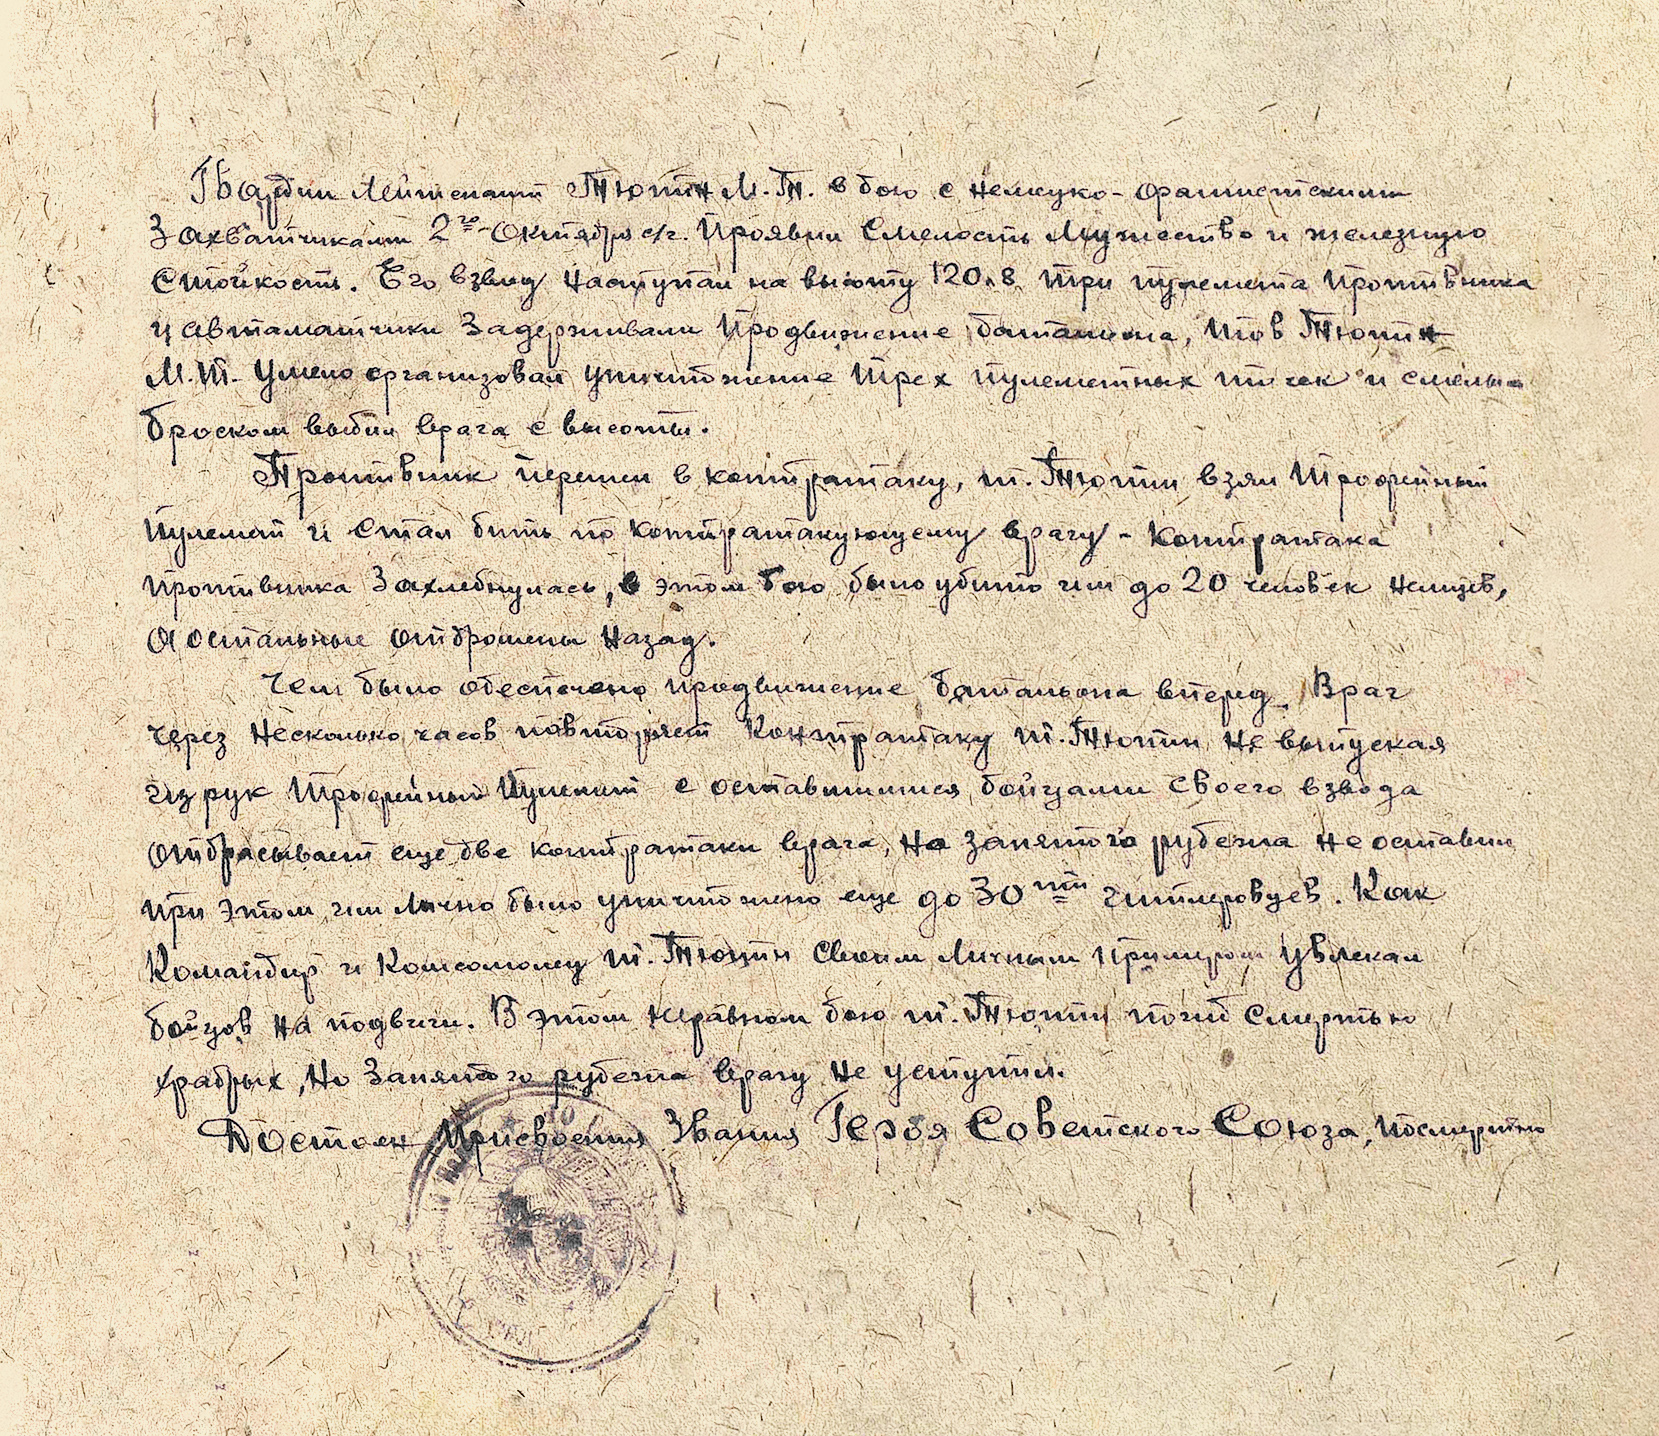 Гвардии Лейтенант Тютин М.Т. в бою с немецко-фашистскими
Захватчиками 2го Октября с/г. Проявил Смелость Мужество и железную
Стойкость. Его взвод Наступал на высоту 120.8 три пулемета Противника
и автаматчики Задерживали Продвижение баталиона, тов Тютин
М.Т. Умело организовал уничтожение трех пулеметных точек и смелым
броском выбил врага с высоты.
Противник перешел в контратаку, т. Тютин взял Трофейный
Пулемет и стал бить по Контратакующему врагу - Контратака
Противника Захлебнулась, в этом бою было убито им до 20 человек немцев,
а остальные отброшены Назад.
Чем было обеспечено продвижение батальона вперед. Враг
через Несколько часов повторяет Контратаку т. Тютин не выпуская
из рук Трофейный Пулемет с оставшимися бойцами своего взвода
отбрасывает еще две контратаки врага, но занятого рубежа не оставил
при этом им лично было уничтожено еще до 30ти гитлеровцев. Как
Командир и Комсомолец т. Тютин своим личным примером увлекал
бойцов на подвиги. В этом неравном бою т. Тютин погиб Смертью
храбрых, но Занятого рубежа врагу не уступил.
Достоин Присвоения Звания Героя Советского Союза, посмертно